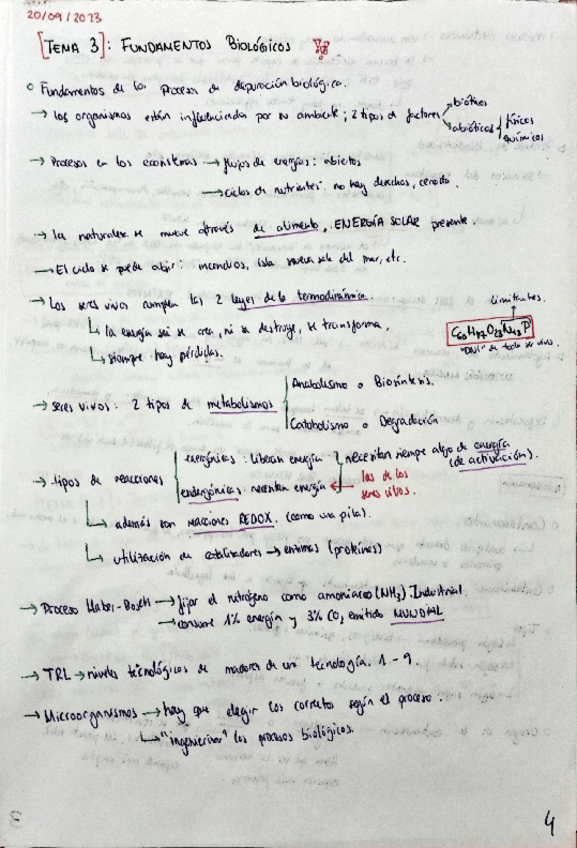 20/09/2023
[TEMA 3]: FUNDAMENTOS BIOLÓGICOS
Fundamentos de los Procesos de depuración biológica.
→ los organismos están influenciada por su ambiente; 2 tipos de factores
bióticos
abióticos
físicos
químicos
→ Procesos en los ecosistemas → flujos de energías: abiertos
→ ciclos de nutrientes: no hay derechos, cerrado.
→ la naturaleza se mueve através de alimento, ENERGÍA SOLAR presente.
→ El ciclo se puede abrir: incendios, isla nueva sale del mar, etc.
→ Los seres vivos cumplen las 2 leyes de la termodinámica.
la energía ni se crea, ni se destruye, se transforma.
siempre hay pérdidas.
limitantes.
"DNI" de todo ser vivo.
→ seres vivos: 2 tipos de metabolismos
Anabolismo o Biosíntesis.
Catabolismo o Degradación
→ tipos de reacciones
exergónicas: liberan energía
endergónicas: necesitan energía
necesitan siempre algo de energía
(de activación).
las de los
seres vivos.
además son REACCIONES REDOX. (como una pila).
utilización de catalizadores → enzimas (proteínas)
→ Proceso Haber-Bosch → fijar el nitrógeno como amoniaco (NH₃) Industrial.
→ consume 1% energía y 3% CO₂ emitido MUNDIAL
→ TRL → niveles tecnológicos de madurez de una tecnología. 1 - 9.
→ Microorganismos → hay que elegir los correctos según el proceso.
los procesos biológicos.
4